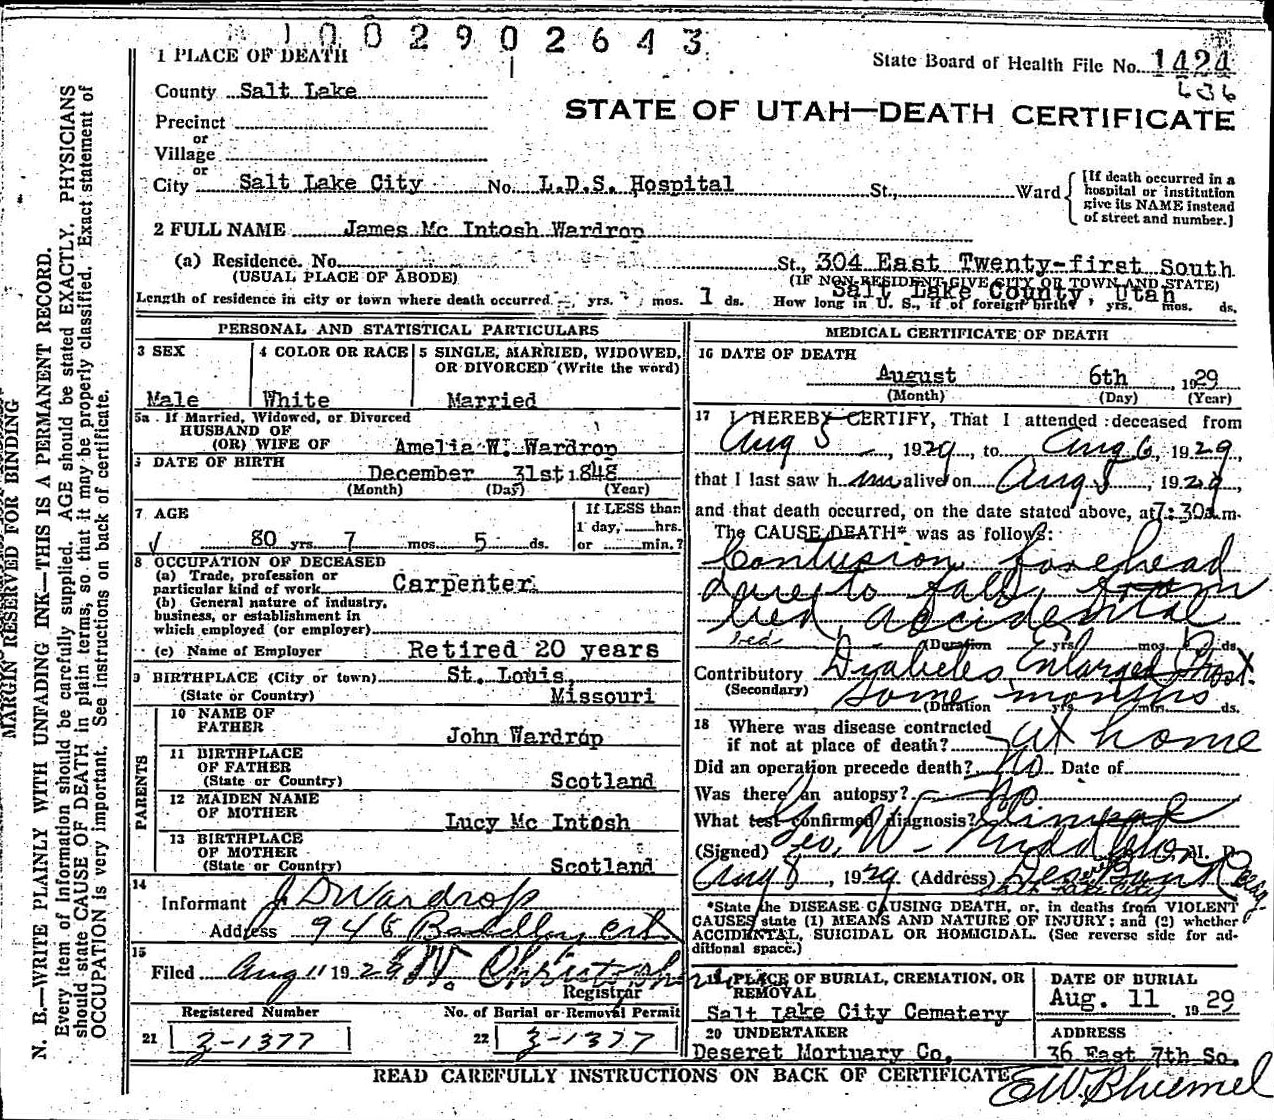 1002902643
1 PLACE OF DEATH
State Board of Health File No. 1424
636
County Salt Lake
STATE OF UTAH—DEATH CERTIFICATE
Precinct
or
Village
or
City Salt Lake City No. L.D.S. Hospital St., Ward
[If death occurred in a
hospital or institution
give its NAME instead
of street and number.]
2 FULL NAME James Mc Intosh Wardrop
(a) Residence. No. St., 304 East Twenty-first South
(USUAL PLACE OF ABODE) (IF NON-RESIDENT GIVE CITY OR TOWN AND STATE)
Salt Lake County, Utah
Length of residence in city or town where death occurred yrs. mos. 1 ds. How long in U. S., if of foreign birth? yrs. mos. ds.
PERSONAL AND STATISTICAL PARTICULARS
3 SEX
Male
4 COLOR OR RACE
White
5 SINGLE, MARRIED, WIDOWED,
OR DIVORCED (Write the word)
Married
5a If Married, Widowed, or Divorced
HUSBAND OF
(OR) WIFE OF Amelia W. Wardrop
6 DATE OF BIRTH
December 31st 1848
(Month) (Day) (Year)
7 AGE
80 yrs. 7 mos. 5 ds.
If LESS than
1 day, hrs.
or min.?
8 OCCUPATION OF DECEASED
(a) Trade, profession or
particular kind of work Carpenter
(b) General nature of industry,
business, or establishment in
which employed (or employer)
(c) Name of Employer Retired 20 years
9 BIRTHPLACE (City or town) St. Louis,
(State or Country) Missouri
PARENTS
10 NAME OF
FATHER John Wardrop
11 BIRTHPLACE
OF FATHER
(State or Country) Scotland
12 MAIDEN NAME
OF MOTHER Lucy Mc Intosh
13 BIRTHPLACE
OF MOTHER
(State or Country) Scotland
14
Informant J D Wardrop
Address 945
15
Filed Aug 11 1929
Registrar
Registered Number
21 3-1377
No. of Burial or Removal Permit
22 3-1377
MEDICAL CERTIFICATE OF DEATH
16 DATE OF DEATH
August 6th, 1929
(Month) (Day) (Year)
17 I HEREBY CERTIFY, That I attended deceased from
Aug 5, 1929, to Aug 6, 1929,
that I last saw him alive on Aug 5, 1929,
and that death occurred, on the date stated above, at 7:30a.m.
The CAUSE DEATH* was as follows:
Contusion forehead
due to fall from
bed, accidental
bed (Duration yrs. mos. ds.
Contributory Diabetes Enlarged Prost.
(Secondary) some months
(Duration yrs. mos. ds.
18 Where was disease contracted
if not at place of death? at home
Did an operation precede death? No Date of
Was there an autopsy? No
What test confirmed diagnosis? Clinical
(Signed) Geo. W. Middleton, M. D.
Aug 8, 1929 (Address) Deseret Bank Bldg.
Salt Lake City
*State the DISEASE CAUSING DEATH, or, in deaths from VIOLENT
CAUSES, state (1) MEANS AND NATURE OF INJURY; and (2) whether
ACCIDENTAL, SUICIDAL OR HOMICIDAL. (See reverse side for ad-
ditional space.)
19 PLACE OF BURIAL, CREMATION, OR
REMOVAL
Salt Lake City Cemetery
DATE OF BURIAL
Aug. 11 1929
20 UNDERTAKER
Deseret Mortuary Co.
ADDRESS
36 East 7th So.
READ CAREFULLY INSTRUCTIONS ON BACK OF CERTIFICATE
E W. Bluemel
MARGIN RESERVED FOR BINDING
N. B.—WRITE PLAINLY WITH UNFADING INK—THIS IS A PERMANENT RECORD.
Every item of information should be carefully supplied. AGE should be stated EXACTLY. PHYSICIANS
should state CAUSE OF DEATH in plain terms, so that it may be properly classified. Exact statement of
OCCUPATION is very important. See instructions on back of certificate.